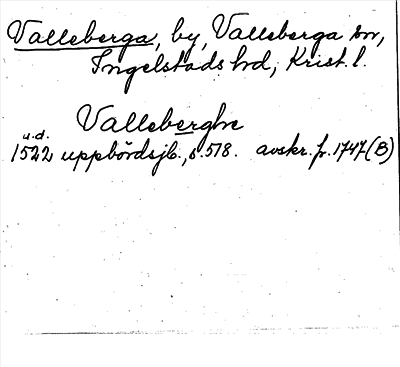 Valleberga, by, Valleberga sn,
Ingelstads hd, Krist. l.
Valleberghe
u.d.
1522 uppbördsjb., s. 518. avskr. fr. 1747 (B)